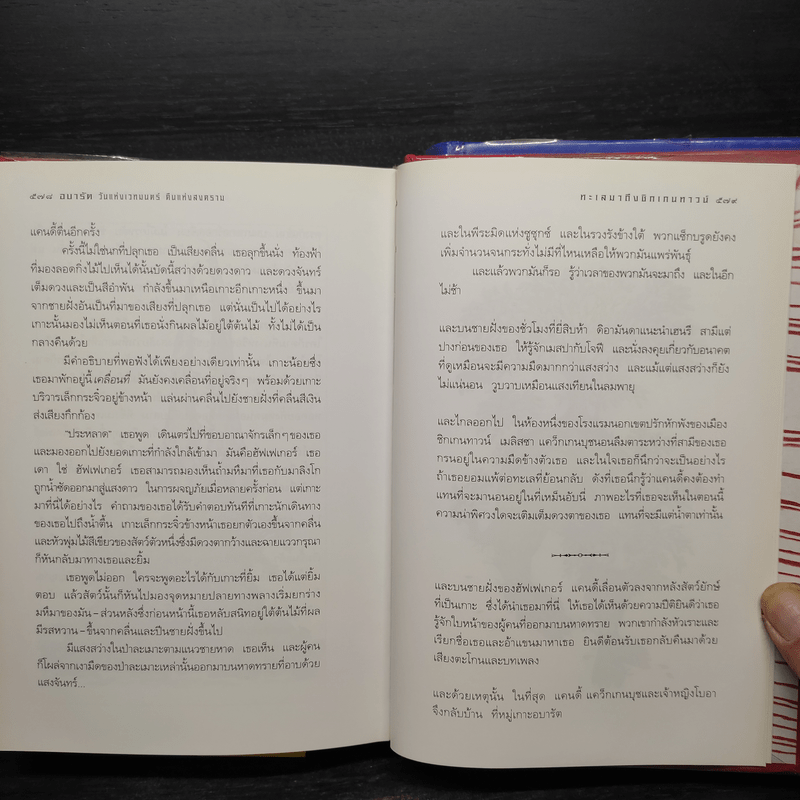 ๕๗๘ อบารัต วันแห่งเวทมนตร์ คืนแห่งสงคราม
แคนดี้ตื่นอีกครั้ง
ครั้งนี้ไม่ใช่นกที่ปลุกเธอ เป็นเสียงคลื่น เธอลุกขึ้นนั่ง ท้องฟ้า
ที่มองลอดกิ่งไม้ไปเห็นได้นั้นบัดนี้สว่างด้วยดวงดาว และดวงจันทร์
เต็มดวงและเป็นสีอำพัน กำลังขึ้นมาเหนือเกาะอีกเกาะหนึ่ง ขึ้นมา
จากชายฝั่งอันเป็นที่มาของเสียงที่ปลุกเธอ แต่นั่นเป็นไปได้อย่างไร
เกาะนั้นมองไม่เห็นตอนที่เธอนั่งกินผลไม้อยู่ใต้ต้นไม้ ทั้งไม่ได้เป็น
กลางคืนด้วย
มีคำอธิบายที่พอฟังได้เพียงอย่างเดียวเท่านั้น เกาะน้อยซึ่ง
เธอมาพักอยู่นี้เคลื่อนที่ มันยังคงเคลื่อนที่อยู่จริงๆ พร้อมด้วยเกาะ
บริวารเล็กกระจิ๋วอยู่ข้างหน้า แล่นผ่านคลื่นไปยังชายฝั่งที่คลื่นสีเงิน
ส่งเสียงกึกก้อง
“ประหลาด” เธอพูด เดินเตร่ไปที่ขอบอาณาจักรเล็กๆของเธอ
และมองออกไปยังยอดเกาะที่กำลังใกล้เข้ามา มันคือฮัฟเฟเกอร์ เธอ
เดา ใช่ ฮัฟเฟเกอร์ เธอสามารถมองเห็นถ้ำมหึมาที่เธอกับมาลิงโก
ถูกน้ำซัดออกมาสู่แสงดาว ในการผจญภัยเมื่อหลายครั้งก่อน แต่เกาะ
มาที่นี่ได้อย่างไร คำถามของเธอได้รับคำตอบทันทีที่เกาะนักเดินทาง
ของเธอไปถึงน้ำตื้น เกาะเล็กกระจิ๋วข้างหน้าเธอยกตัวเองขึ้นจากคลื่น
และหัวพุ่มไม้สีเขียวของสัตว์ตัวหนึ่งซึ่งมีดวงตากว้างและฉายแววกรุณา
ก็หันกลับมาทางเธอและยิ้ม
เธอพูดไม่ออก ใครจะพูดอะไรได้กับเกาะที่ยิ้ม เธอได้แต่ยิ้ม
ตอบ แล้วสัตว์นั้นก็หันไปมองจุดหมายปลายทางพลางเริ่มยกร่าง
มหึมาของมัน – ส่วนหลังซึ่งก่อนหน้านี้เธอหลับสนิทอยู่ใต้ต้นไม้ที่ผล
มีรสหวาน – ขึ้นจากคลื่นและปีนชายฝั่งขึ้นไป
มีแสงสว่างในป่าละเมาะตามแนวชายหาด เธอเห็น และผู้คน
ก็โผล่จากเงามืดของป่าละเมาะเหล่านั้นออกมาบนหาดทรายที่อาบด้วย
แสงจันทร์...
ทะเลมาถึงชิกเกนทาวน์ ๕๗๙
และในพีระมิดแห่งซูซุกซ์ และในรวงรังข้างใต้ พวกแซ็กบรูดยังคง
เพิ่มจำนวนจนกระทั่งไม่มีที่ไหนเหลือให้พวกมันแพร่พันธุ์
และแล้วพวกมันก็รอ รู้ว่าเวลาของพวกมันจะมาถึง และในอีก
ไม่ช้า
และบนชายฝั่งของชั่วโมงที่ยี่สิบห้า ดิอามันดาแนะนำเฮนรี สามีแต่
ปางก่อนของเธอ ให้รู้จักเมสปากับโจฟี และนั่งลงคุยเกี่ยวกับอนาคต
ที่ดูเหมือนจะมีความมืดมากกว่าแสงสว่าง และแม้แต่แสงสว่างก็ยัง
ไม่แน่นอน วูบวาบเหมือนแสงเทียนในลมพายุ
และไกลออกไป ในห้องหนึ่งของโรงแรมนอกเขตปรักหักพังของเมือง
ชิกเกนทาวน์ เมลิสซา แคว็กเกนบุชนอนลืมตาระหว่างที่สามีของเธอ
กรนอยู่ในความมืดข้างตัวเธอ และในใจเธอก็นึกว่าจะเป็นอย่างไร
ถ้าเธอยอมแพ้ต่อทะเลที่ย้อนกลับ ดังที่เธอนึกรู้ว่าแคนดี้คงต้องทำ
แทนที่จะมานอนอยู่ในที่เหม็นอับนี่ ภาพอะไรที่เธอจะเห็นในตอนนี้
ความน่าพิศวงใดจะเติมเต็มดวงตาของเธอ แทนที่จะมีแต่น้ำตาเท่านั้น
และบนชายฝั่งของฮัฟเฟเกอร์ แคนดี้เลื่อนตัวลงจากหลังสัตว์ยักษ์
ที่เป็นเกาะ ซึ่งได้นำเธอมาที่นี่ ให้เธอได้เห็นด้วยความปีติยินดีว่าเธอ
รู้จักใบหน้าของผู้คนที่ออกมาบนหาดทราย พวกเขากำลังหัวเราะและ
เรียกชื่อเธอและอ้าแขนมาหาเธอ ยินดีต้อนรับเธอกลับคืนมาด้วย
เสียงตะโกนและบทเพลง
และด้วยเหตุนั้น ในที่สุด แคนดี้ แคว็กเกนบุชและเจ้าหญิงโบอา
จึงกลับบ้าน ที่หมู่เกาะอบารัต